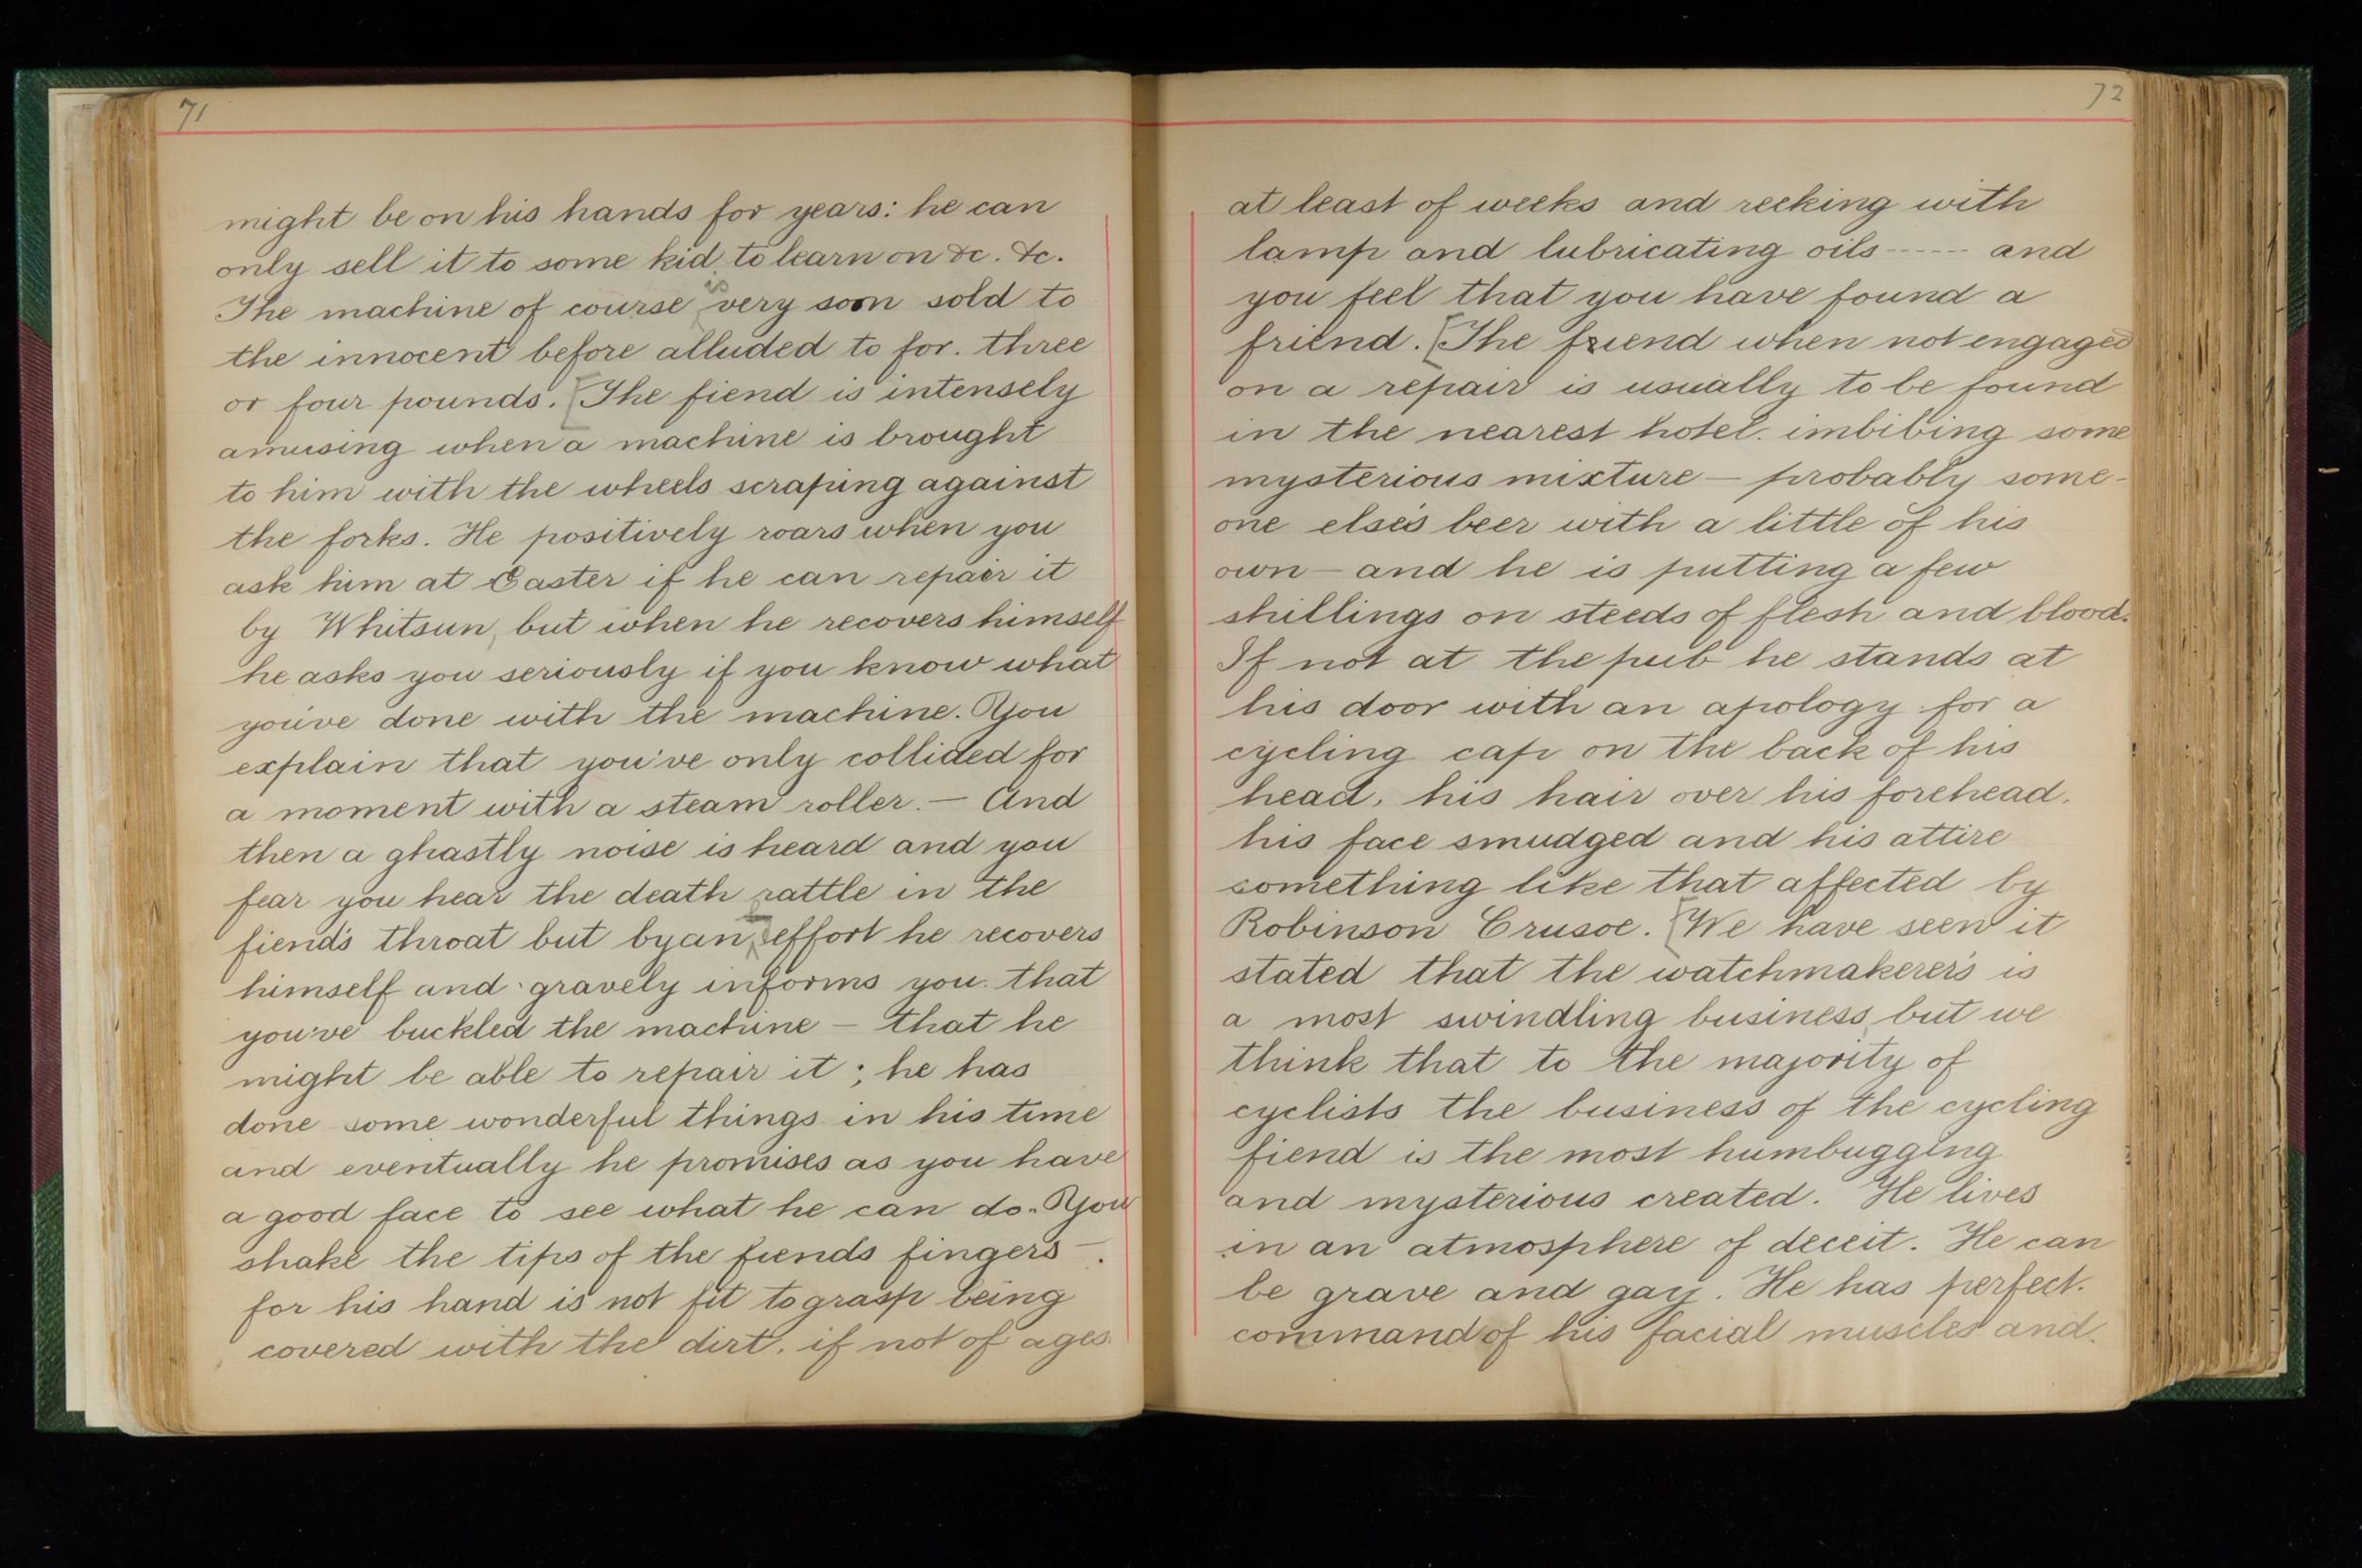 71
might be on his hands for years: he can
only sell it to some kid to learn on &c. &c.
The machine of course is very soon sold to
the innocent before alluded to for. three
or four pounds. [The fiend is intensely
amusing when a machine is brought
to him with the wheels scraping against
the forks. He positively roars when you
ask him at Easter if he can repair it
by Whitsun, but when he recovers himself
he asks you seriously if you know what
you've done with the machine. You
explain that you've only collided for
a moment with a steam roller. — And
then a ghastly noise is heard and you
fear you hear the death rattle in the
fiend's throat but by an effort he recovers
himself and gravely informs you that
you've buckled the machine — that he
might be able to repair it; he has
done some wonderful things in his time
and eventually he promises as you have
a good face to see what he can do. You
shake the tips of the fiends fingers —.
for his hand is not fit to grasp being
covered with the dirt, if not of ages
72
at least of weeks and reeking with
lamp and lubricating oils ----- and
you feel that you have found a
friend. [The friend when not engaged
on a repair is usually to be found
in the nearest hotel. imbibing some
mysterious mixture — probably some-
one else's beer with a little of his
own — and he is putting a few
shillings on steeds of flesh and blood.
If not at the pub he stands at
his door with an apology for a
cycling cap on the back of his
head, his hair over his forehead,
his face smudged and his attire
something like that affected by
Robinson Crusoe. [We have seen it
stated that the watchmakerer's is
a most swindling business, but we
think that to the majority of
cyclists the business of the cycling
fiend is the most humbugging
and mysterious created. He lives
in an atmosphere of deceit. He can
be grave and gay. He has perfect.
command of his facial muscles and.